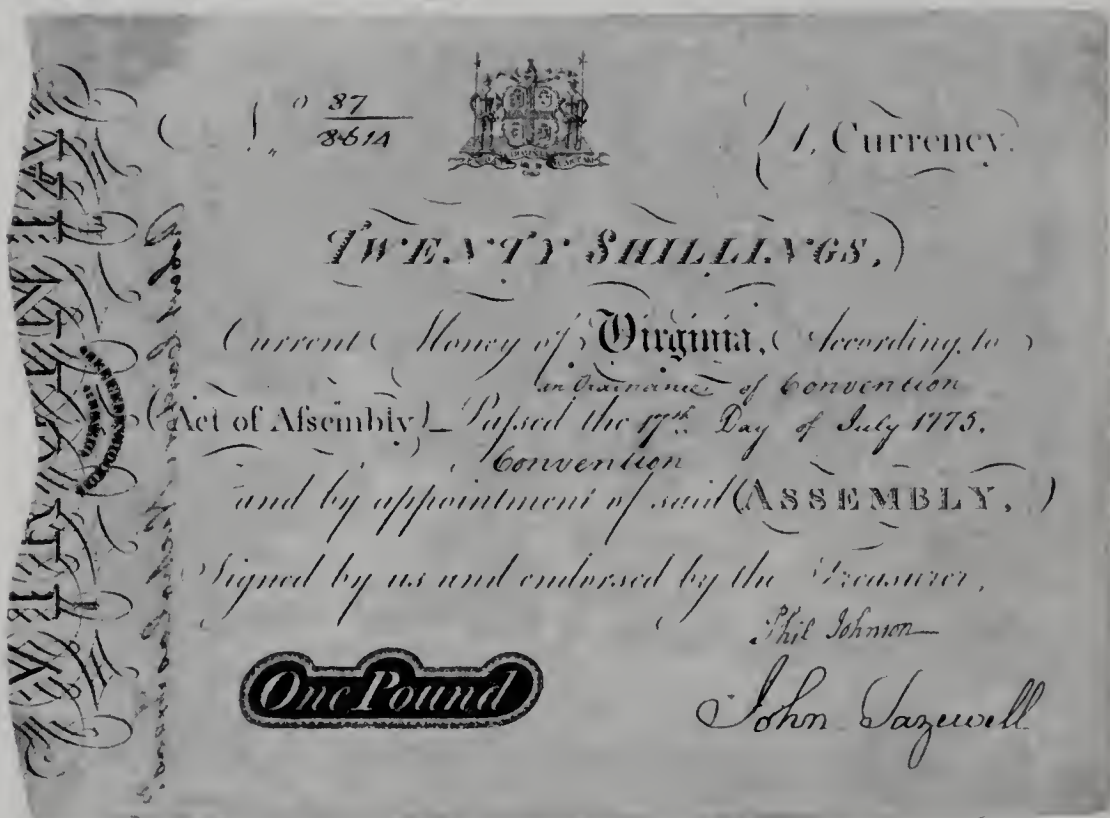 87
8614
1, Currency.
TWENTY SHILLINGS,
Current Money of Virginia, According to
an Ordinance of Convention
(Act of Assembly) Passed the 17th Day of July 1775.
Convention
and by appointment of said (ASSEMBLY,)
Signed by us and endorsed by the Treasurer,
Phil Johnson
One Pound
John Tazewell